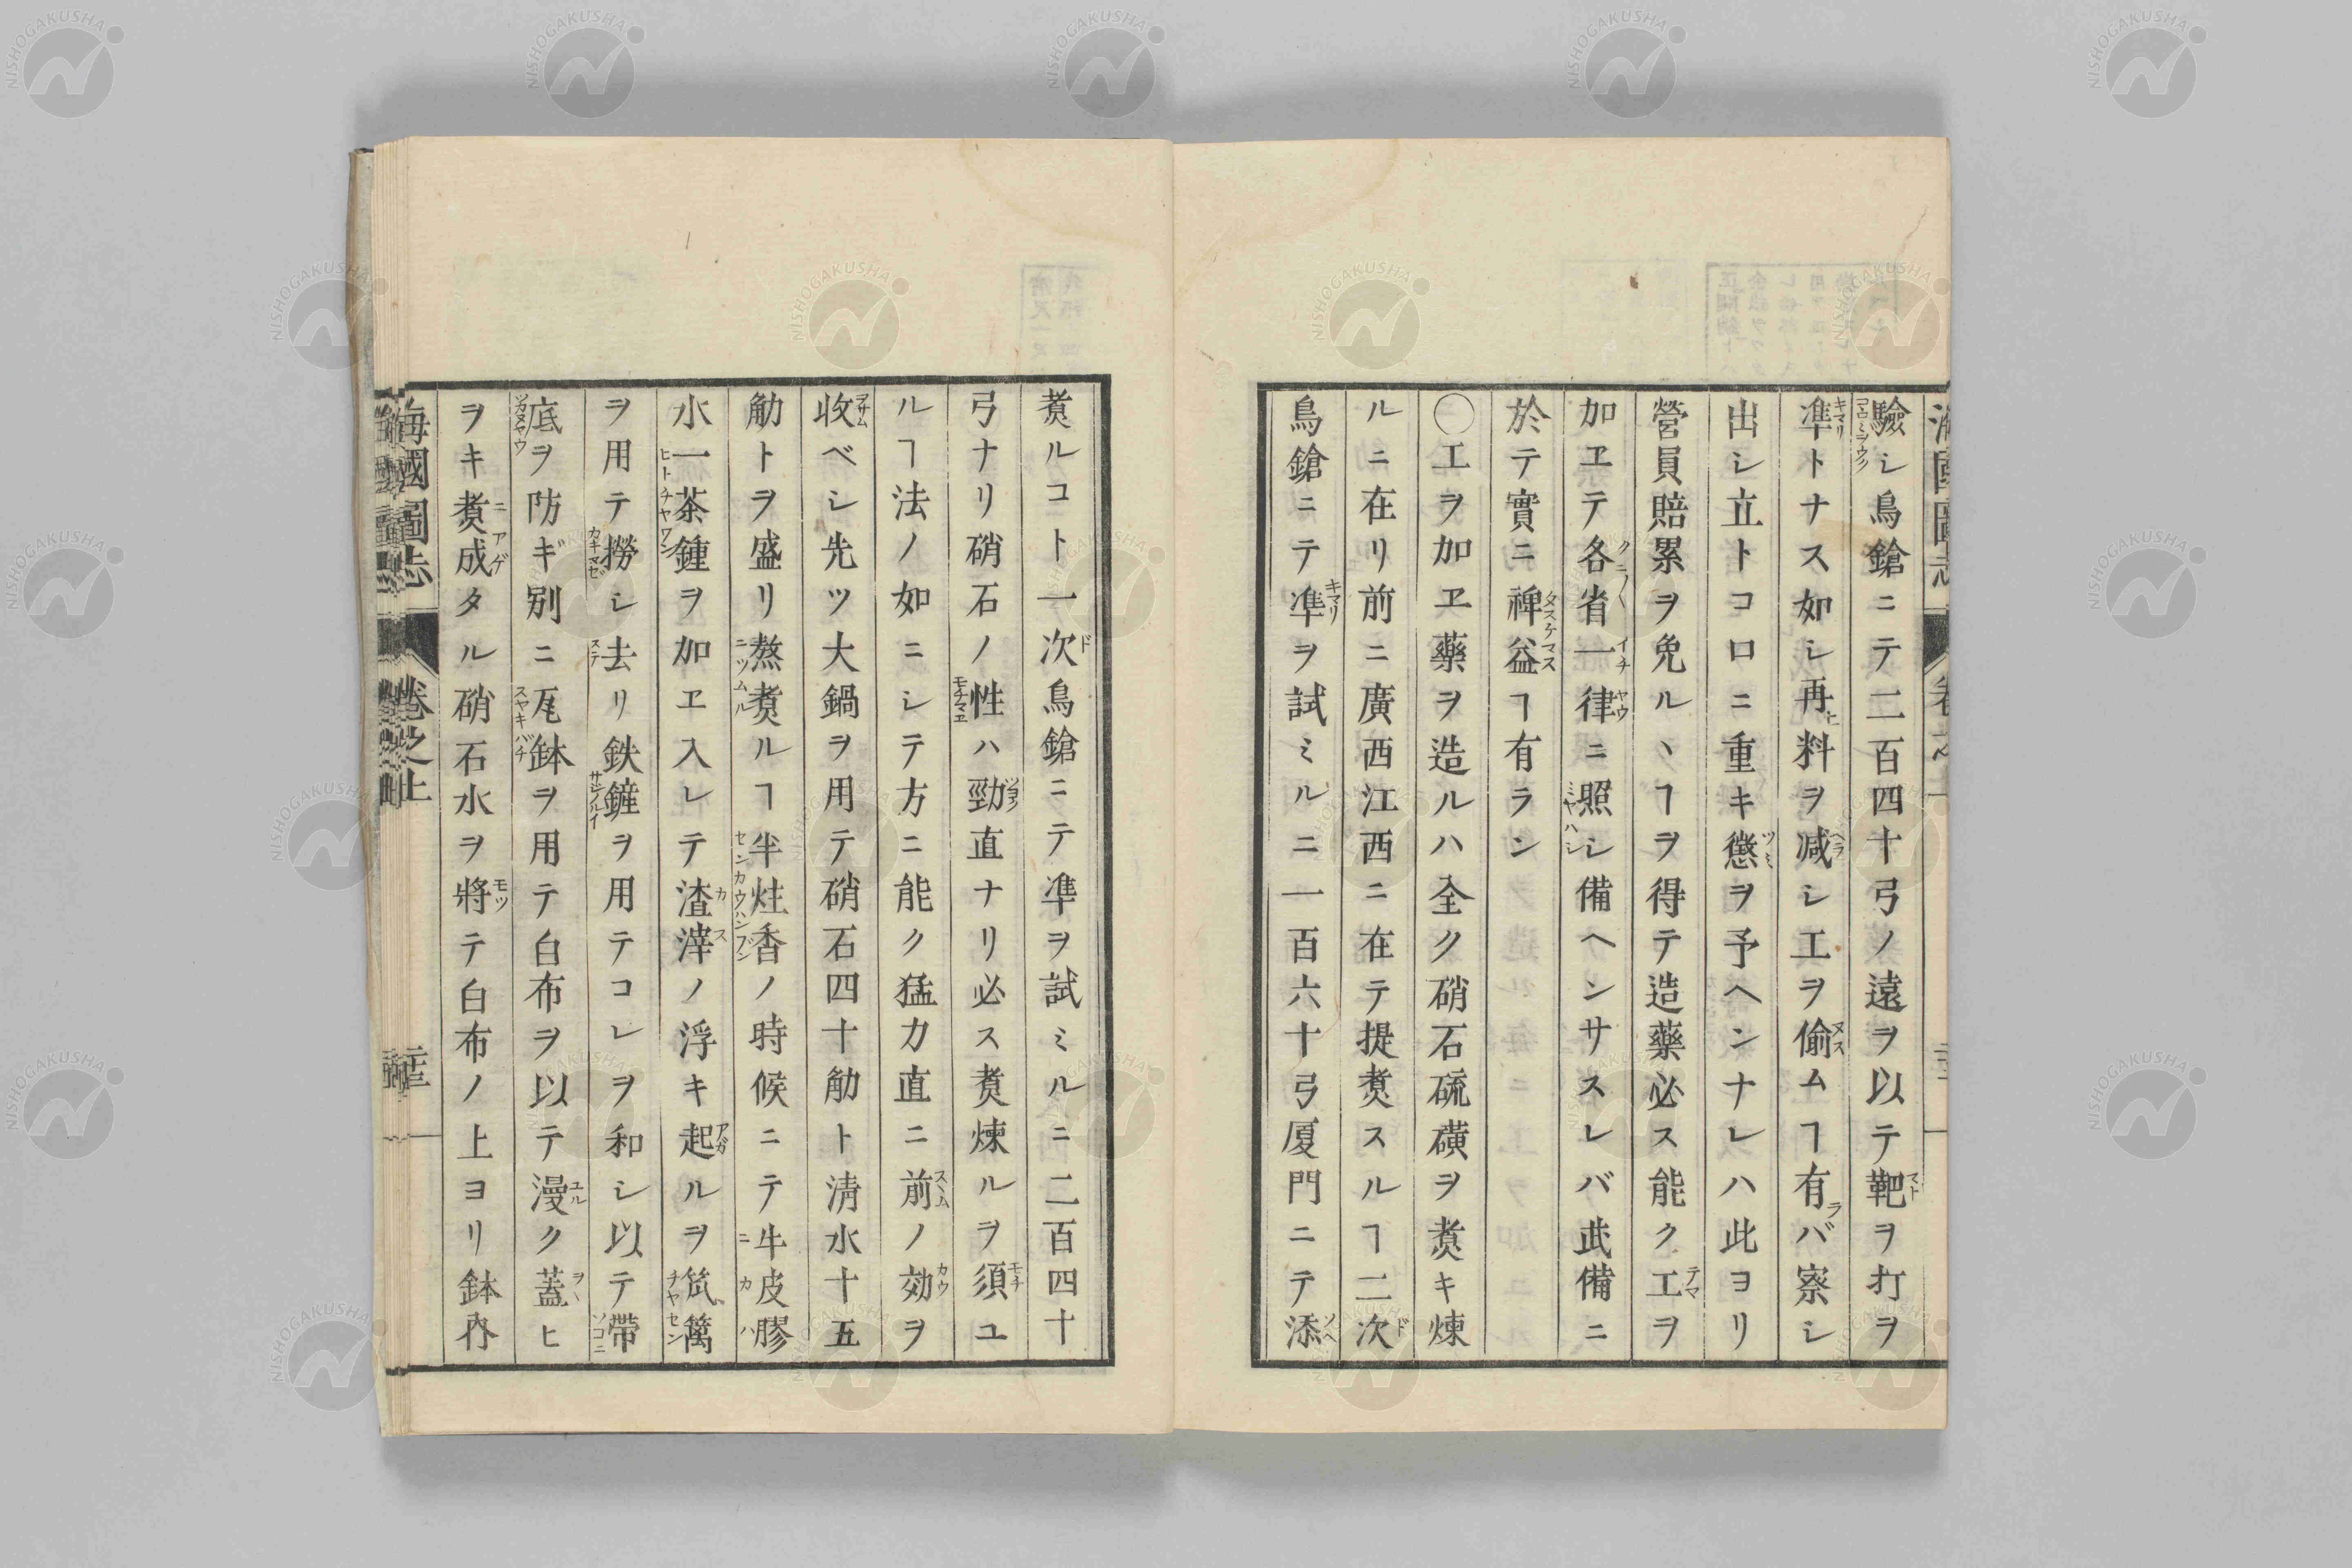 驗シ鳥鎗ニテ二百四十弓ノ遠ヲ以テ靶ヲ打ヲ
準トナス如シ再料ヲ減シ工ヲ偷ムヿ有バ察シ
出シ立トコロニ重キ懲ヲ予ヘンナレハ此ヨリ
營員賠累ヲ免ルヽヿヲ得テ造藥必ス能ク工ヲ
加ヱテ各省一律ニ照シ備ヘンサスレバ武備ニ
於テ實ニ裨益ヿ有ラン
〇工ヲ加ヱ藥ヲ造ルハ全ク硝石硫磺ヲ煑キ煉
ルニ在リ前ニ廣西江西ニ在テ提煑スルヿ二次
鳥鎗ニテ準ヲ試ミルニ一百六十弓厦門ニテ添
煑ルコト一次鳥鎗ニテ準ヲ試ミルニ二百四十
弓ナリ硝石ノ性ハ勁直ナリ必ス煑煉ルヲ須ユ
ルヿ法ノ如ニシテ方ニ能ク猛力直ニ前ノ効ヲ
收ベシ先ツ大鍋ヲ用テ硝石四十觔ト清水十五
觔トヲ盛リ熬煑ルヿ半炷香ノ時候ニテ牛皮膠
水一茶鍾ヲ加ヱ入レテ渣滓ノ浮キ起ルヲ笊籬
ヲ用テ撈シ去リ鉄鏟ヲ用テコレヲ和シ以テ帶
底ヲ防ギ別ニ瓦鉢ヲ用テ白布ヲ以テ漫ク蓋ヒ
ヲキ煑成タル硝石水ヲ將テ白布ノ上ヨリ鉢内
海國圖志 卷之上
NISHOGAKUSHA